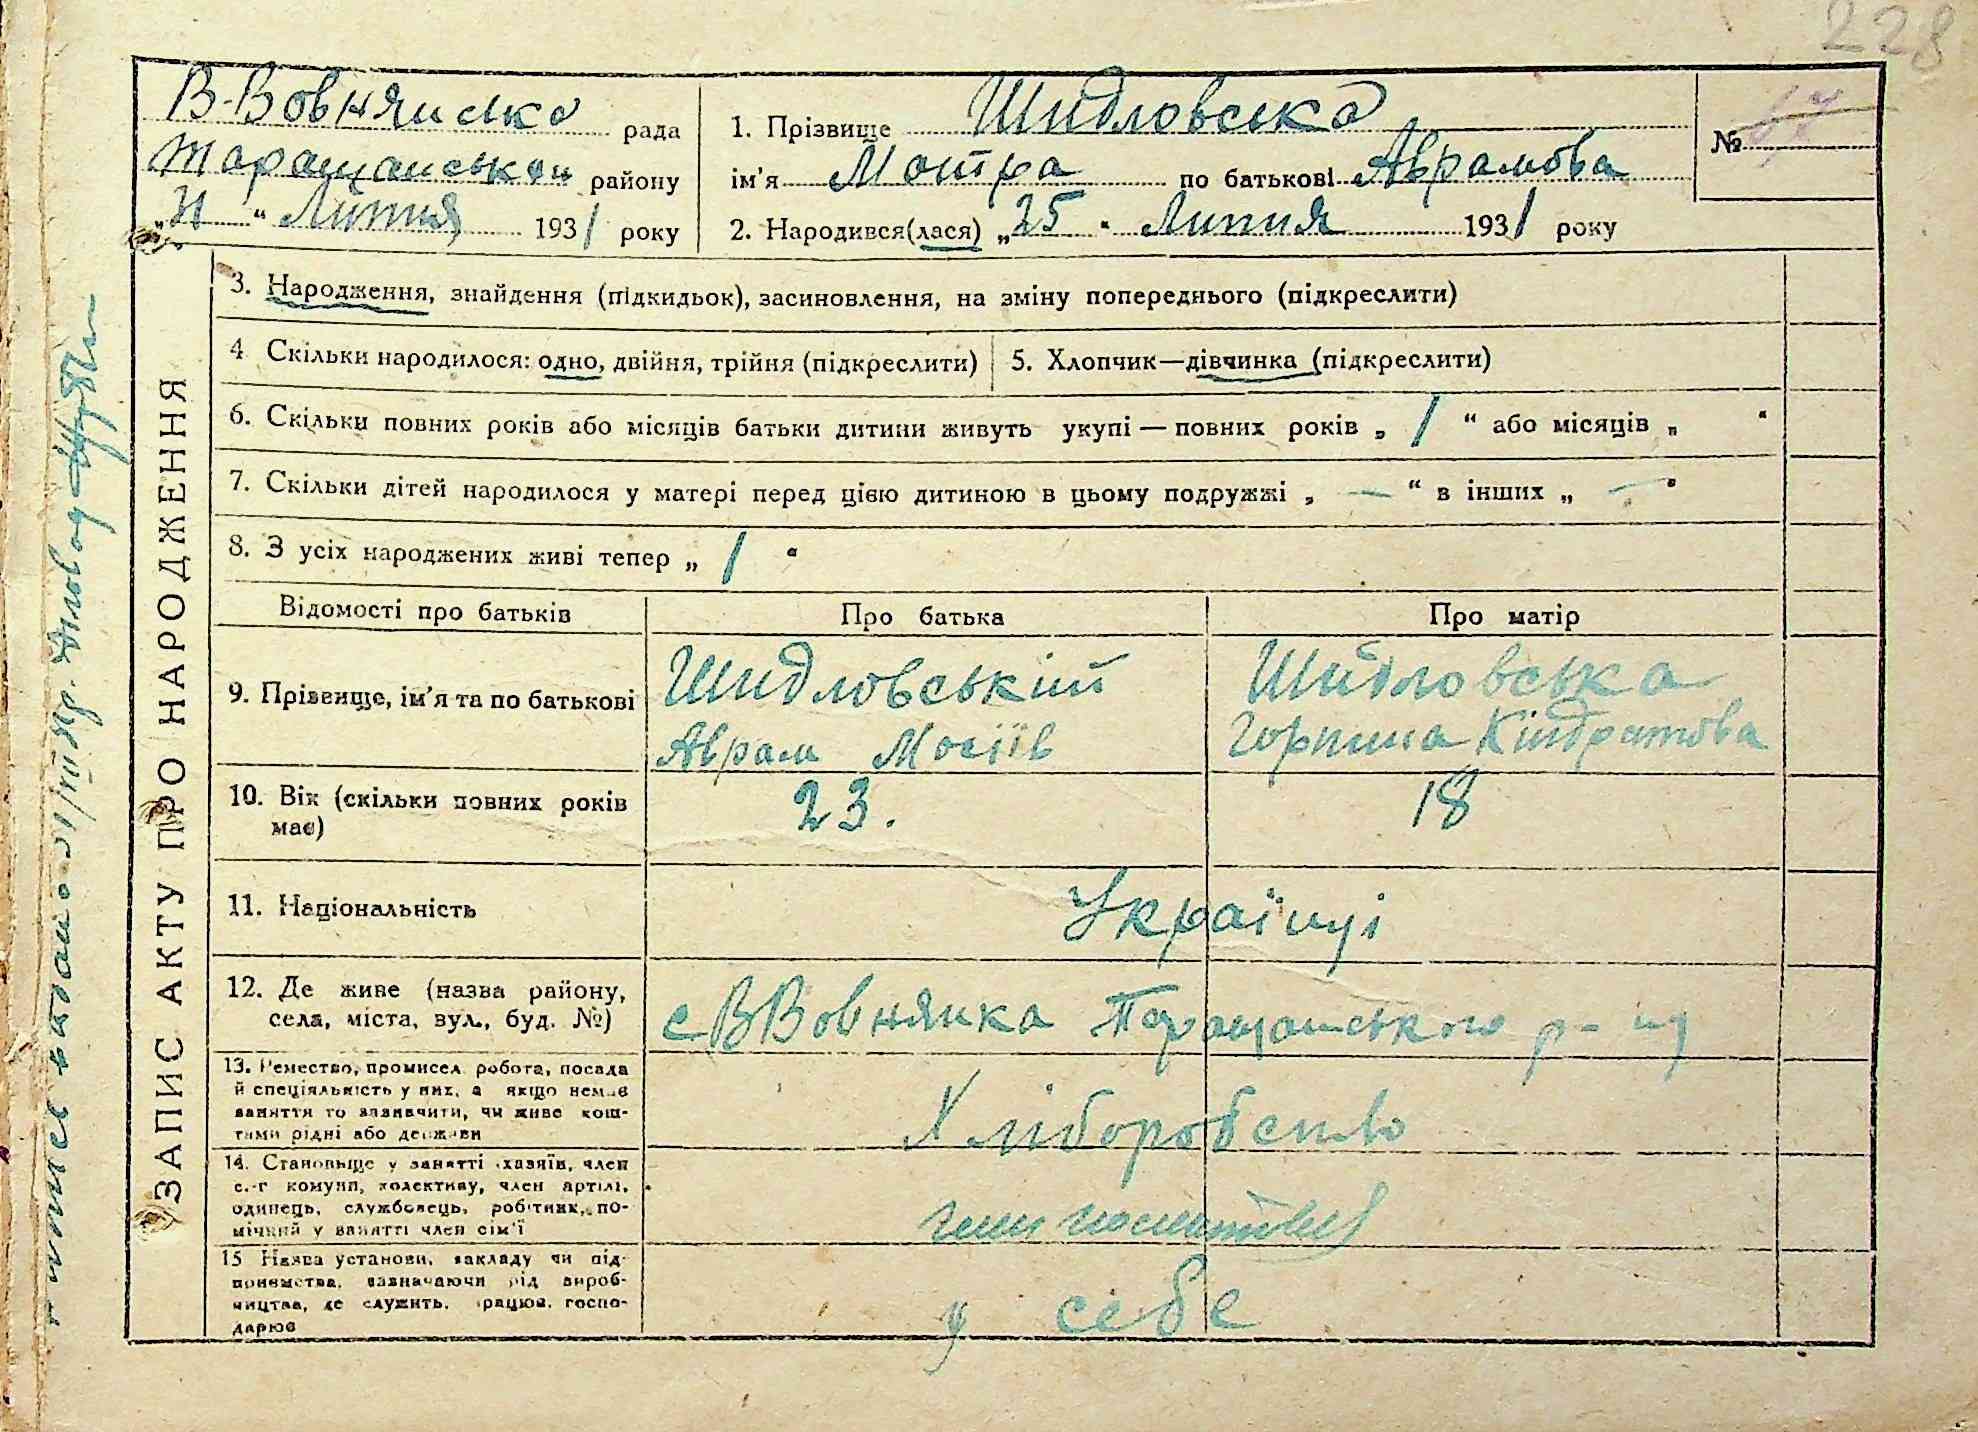 228
В-Вовнянська рада
Таращанськ району
" Липня 1931 року
1. Прізвище Шидловська
ім'я Мотра по батькові Аврамова
2. Народився(лася) „25" Липня 1931 року
№
ЗАПИС АКТУ ПРО НАРОДЖЕННЯ
3. Народження, знайдення (підкидьок), засиновлення, на зміну попереднього (підкреслити)
4 Скільки народилося: одно, двійня, трійня (підкреслити)
5. Хлопчик—дівчинка (підкреслити)
6. Скільки повних років або місяців батьки дитини живуть укупі — повних років „ 1 “ або місяців „ “
7. Скільки дітей народилося у матері перед цією дитиною в цьому подружжі „ — “ в інших „ — “
8. З усіх народжених живі тепер „ 1 “
Відомості про батьків
Про батька
Про матір
9. Прізвище, ім'я та по батькові
Шидловський
Аврам Мосіїв
Шидловська
Горпина Кіндратова
10. Вік (скільки повних років
має)
23.
18
11. Національність
Українці
12. Де живе (назва району,
села, міста, вул., буд. №)
с ВВовнянка Таращанського р-ну
13. Ремество, промисел, робота, посада
й спеціяльність у них, а якщо немає
заняття то зазначити, чи живе кош-
тами рідні або держави
Хліборобство
14. Становище у занятті (хазяїв, член
с.-г комуни, колективу, член артілі,
одинець, службовець, робітник, по-
мічний у занятті член сім'ї
15 Назва установи, закладу чи під-
приємства, зазначаючи рід вироб-
ництва, де служить, працює, госпо-
дарює
у себе